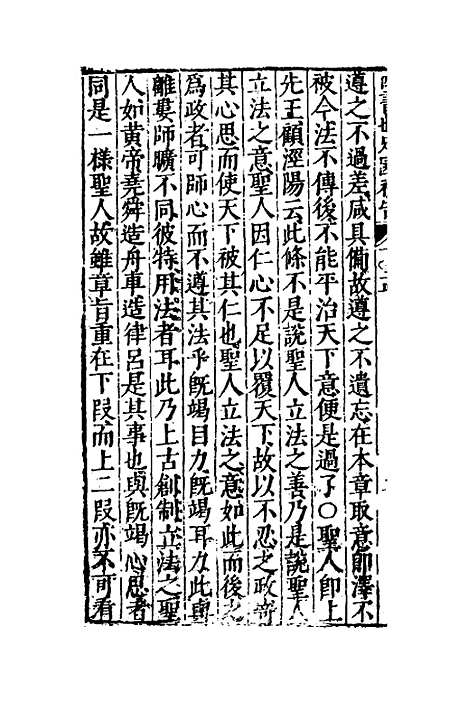 遵之不過差咸具備故遵之不遺忘在本章取意卽澤不
被今法不傳後不能平治天下意便是過了○聖人卽上
先王顧涇陽云此條不是說聖人立法之善乃是說聖人
立法之意聖人因仁心不足以覆天下故以不忍之政竒
其心思而使天下被其仁也聖人立法之意如此而後之
爲政者可師心而不遵其法乎旣竭目力旣竭耳力此與
離婁師曠不同彼特用法者耳此乃上古創制立法之聖
人如黃帝堯舜造舟車造律呂是其事也與旣竭心思者
同是一樣聖人故雖章旨重在下段而上二段亦不可看